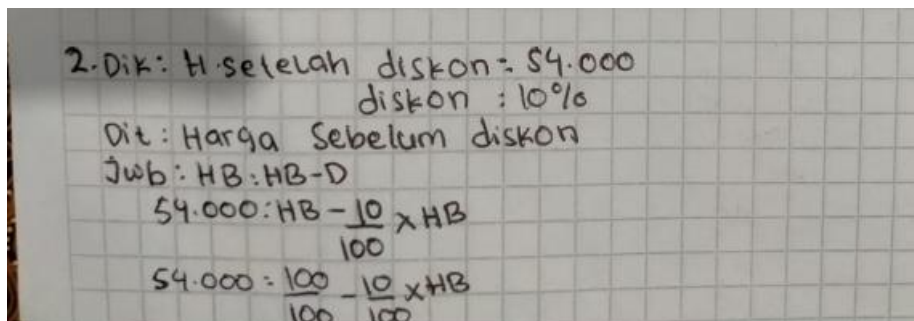 2. Dik: H. setelah diskon = 54.000
diskon : 10%
Dit : Harga Sebelum diskon
Jwb : HB : HB - D
54.000 : HB - 10/100 x HB
54.000 = 100/100 - 10/100 x HB